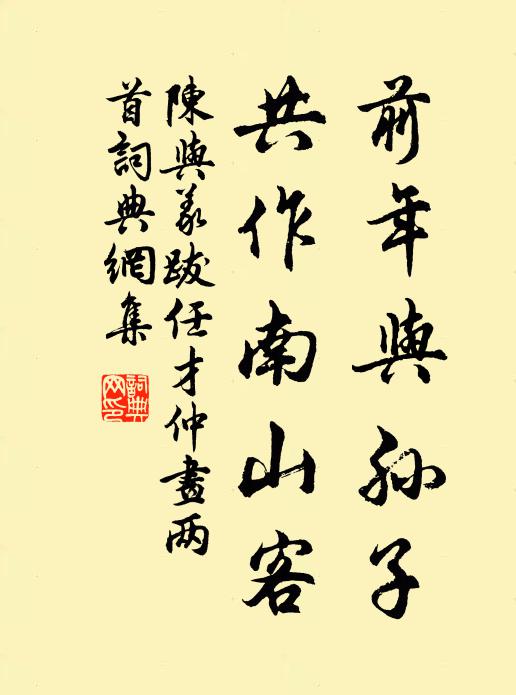 前年與孙子
共作南山客
陳與义跋任才仲畫两
首詞典網集
詞典網印